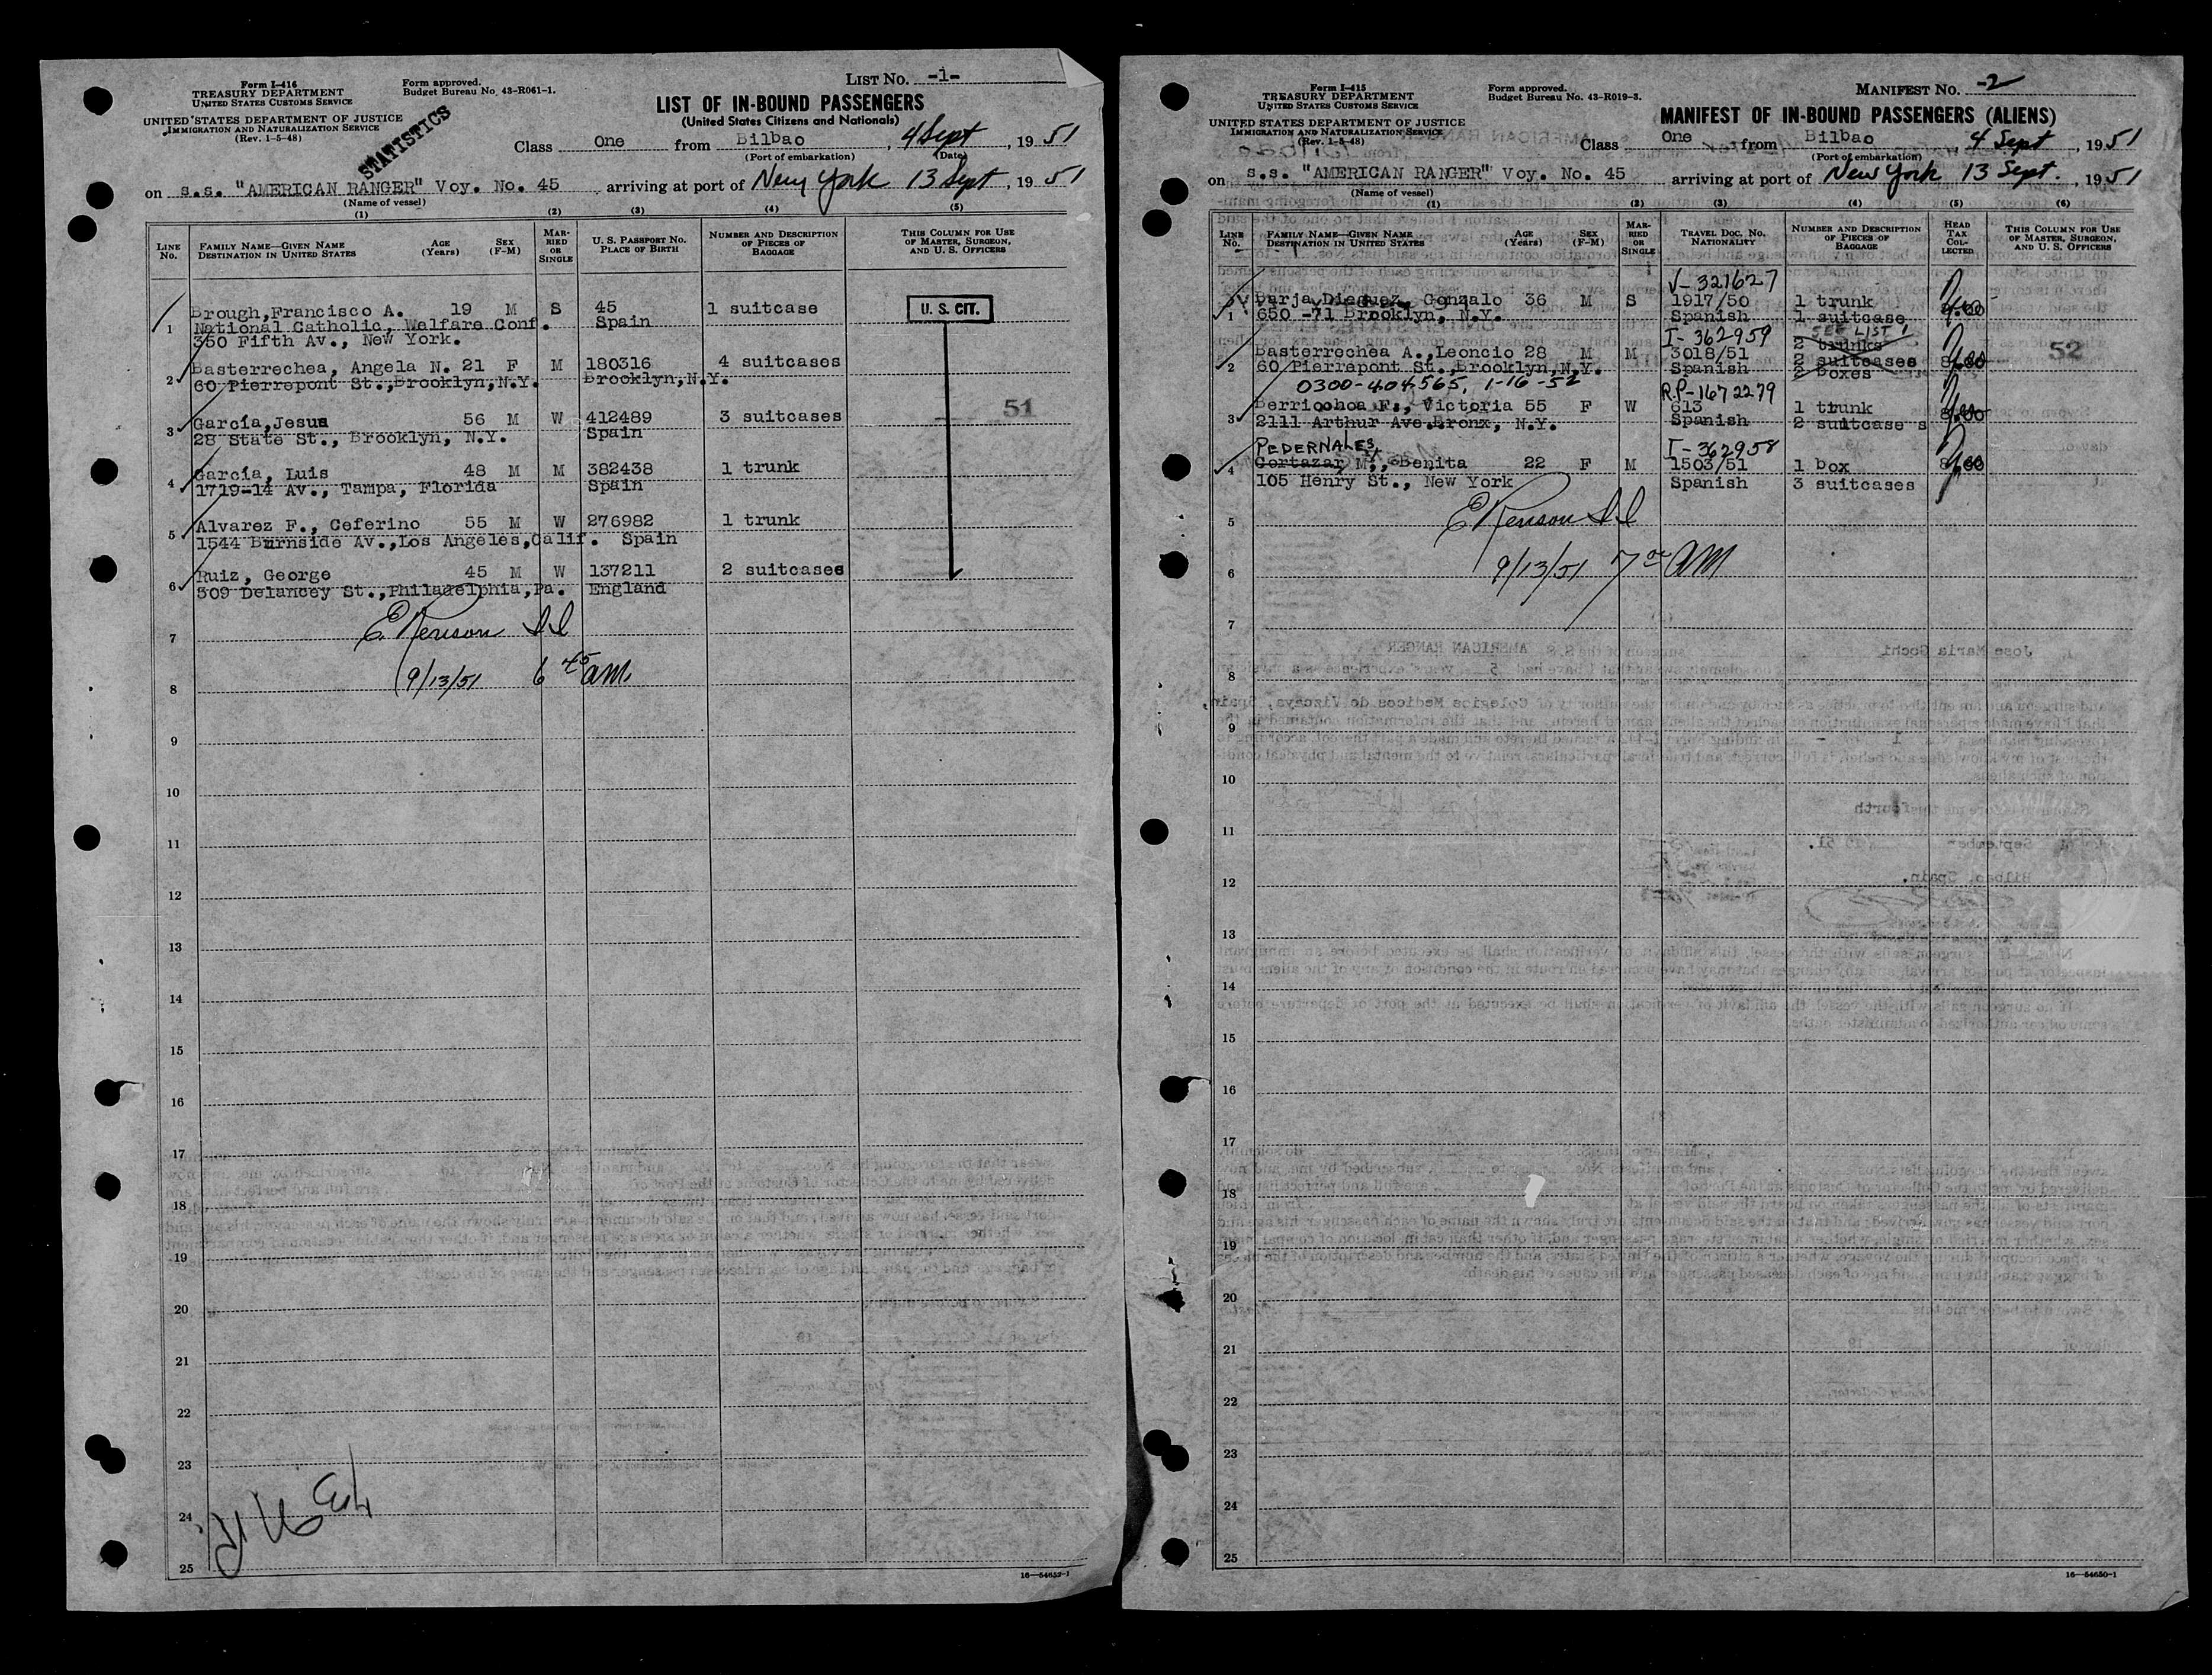 Form I-416
TREASURY DEPARTMENT
UNITED STATES CUSTOMS SERVICE
UNITED STATES DEPARTMENT OF JUSTICE
IMMIGRATION AND NATURALIZATION SERVICE
(Rev. 1-5-48)
Form approved.
Budget Bureau No. 43-R061-1.
STATISTICS
LIST No. -1-
LIST OF IN-BOUND PASSENGERS
(United States Citizens and Nationals)
Class One from Bilbao, 4 Sept, 1951
(Port of embarkation) (Date)
on s.s. "AMERICAN RANGER" Voy. No. 45 arriving at port of New York 13 Sept, 1951
(Name of vessel)
(1) (2) (3) (4) (5)
LINE No. FAMILY NAME—GIVEN NAME DESTINATION IN UNITED STATES AGE (Years) SEX (F-M) MARRIED OR SINGLE U. S. PASSPORT No. PLACE OF BIRTH NUMBER AND DESCRIPTION OF PIECES OF BAGGAGE THIS COLUMN FOR USE OF MASTER, SURGEON, AND U. S. OFFICERS
1 Brough, Francisco A. 19 M S 45 1 suitcase U. S. CIT.
National Catholic, Welfare Conf. Spain
350 Fifth Av., New York.
2 Basterrechea, Angela N. 21 F M 180316 4 suitcases
60 Pierrepont St., Brooklyn, N.Y. Brooklyn, N.Y.
3 García, Jesus 56 M W 412489 3 suitcases 51
28 State St., Brooklyn, N.Y. Spain
4 García, Luis 48 M M 382438 1 trunk
1719-14 Av., Tampa, Florida Spain
5 Alvarez F., Ceferino 55 M W 276982 1 trunk
1544 Burnside Av., Los Angeles, Calif. Spain
6 Ruiz, George 45 M W 137211 2 suitcases
309 Delancey St., Philadelphia, Pa. England
7
8 9/13/51 6 45 am.
9
10
11
12
13
14
15
16
17
18
19
20
21
22
23
24
25
16—54652-1
Form I-415
TREASURY DEPARTMENT
UNITED STATES CUSTOMS SERVICE
UNITED STATES DEPARTMENT OF JUSTICE
IMMIGRATION AND NATURALIZATION SERVICE
(Rev. 1-5-48)
Form approved.
Budget Bureau No. 43-R019-3.
MANIFEST No. -2
MANIFEST OF IN-BOUND PASSENGERS (ALIENS)
Class One from Bilbao, 4 Sept, 1951
(Port of embarkation)
on s.s. "AMERICAN RANGER" Voy. No. 45 arriving at port of New York 13 Sept., 1951
(Name of vessel)
(1) (2) (3) (4) (5) (6)
LINE No. FAMILY NAME—GIVEN NAME DESTINATION IN UNITED STATES AGE (Years) SEX (F-M) MARRIED OR SINGLE TRAVEL DOC. No. NATIONALITY NUMBER AND DESCRIPTION OF PIECES OF BAGGAGE HEAD TAX COLLECTED THIS COLUMN FOR USE OF MASTER, SURGEON, AND U. S. OFFICERS
V-321627
1 Barja Dieguez, Gonzalo 36 M S 1917/50 1 trunk 8.00
650 -71 Brooklyn, N.Y. Spanish 1 suitcase
I-362959 SEE LIST 1
2 trunks
2 Basterrechea A., Leoncio 28 M M 3018/51 2 suitcases 8.00 52
60 Pierrepont St., Brooklyn, N.Y. Spanish 2 boxes
0300-404565, 1-16-52 R.P-1672279
3 Berriochoa F., Victoria 55 F W 613 1 trunk 8.00
2111 Arthur Ave. Bronx, N.Y. Spanish 2 suitcases
PEDERNALES, I-362958
4 Cortazar M., Benita 22 F M 1503/51 1 box 8.00
105 Henry St., New York Spanish 3 suitcases
5
6 9/13/51 7 00 AM
7
8
9
10
11
12
13
14
15
16
17
18
19
20
21
22
23
24
25
16—54650-1